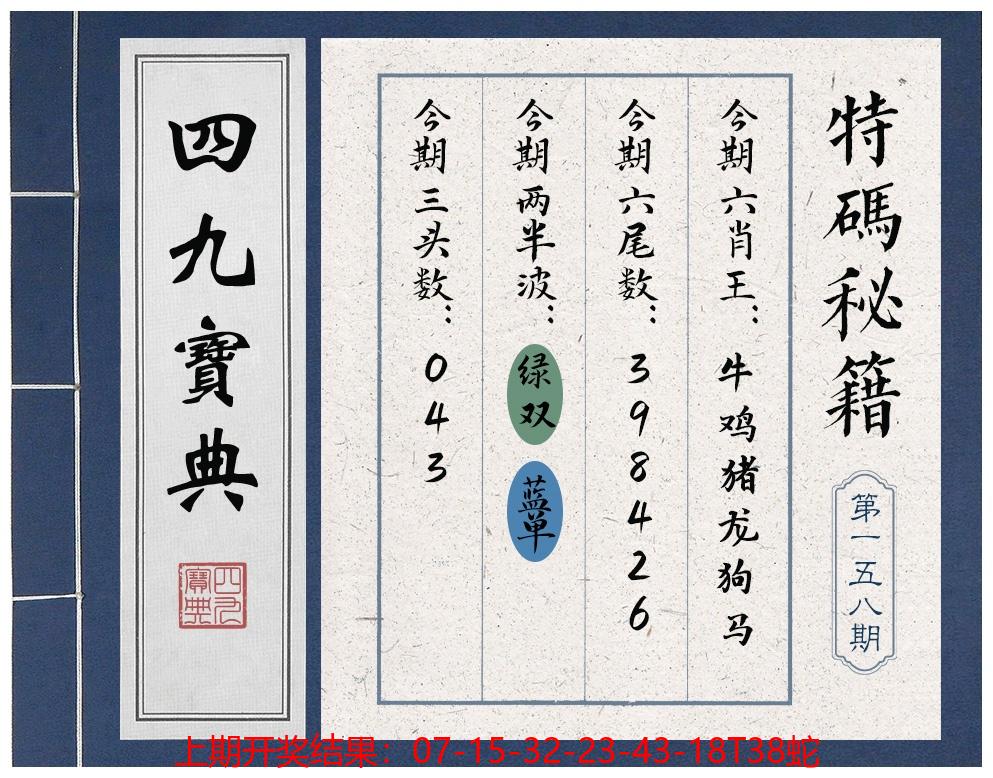 特碼秘籍
第一五八期
今期六肖王：牛鸡猪龙狗马
今期六尾数：398426
今期两半波：绿双 蓝单
今期三头数：043
四九寶典
四九寶典
上期开奖结果：07-15-32-23-43-18T38蛇